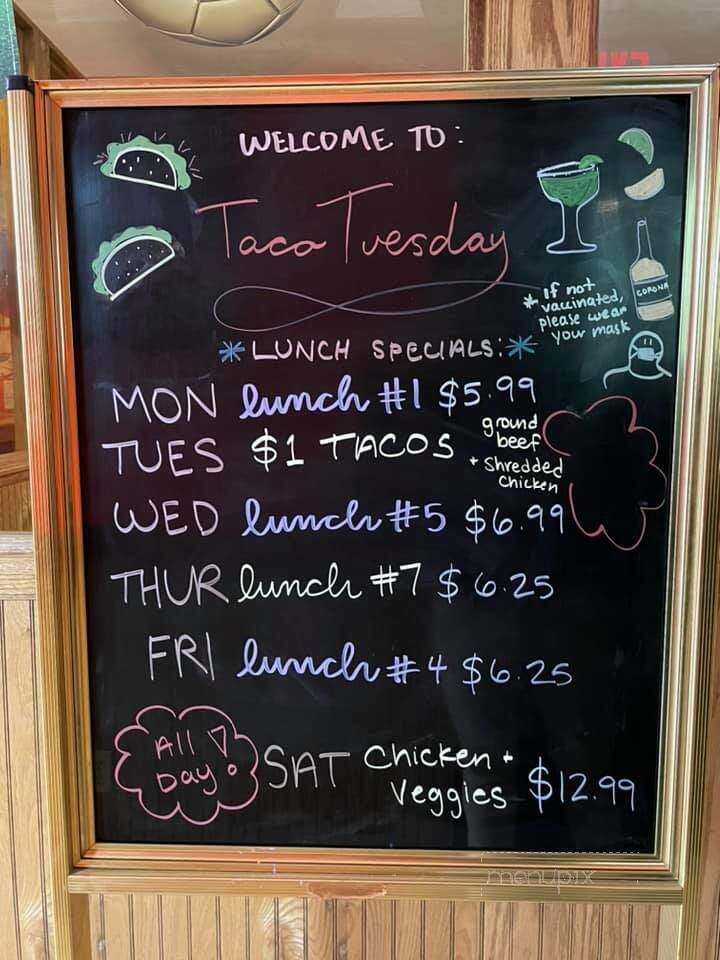 WELCOME TO:
Taco Tuesday
* If not
vaccinated,
please wear
your mask
CORONA
*LUNCH SPECIALS:*
MON lunch #1 $5.99
TUES $1 TACOS ground
beef
+ Shredded
Chicken
WED lunch #5 $6.99
THUR lunch #7 $6.25
FRI lunch #4 $6.25
All
Day!
SAT Chicken +
Veggies $12.99
menupix